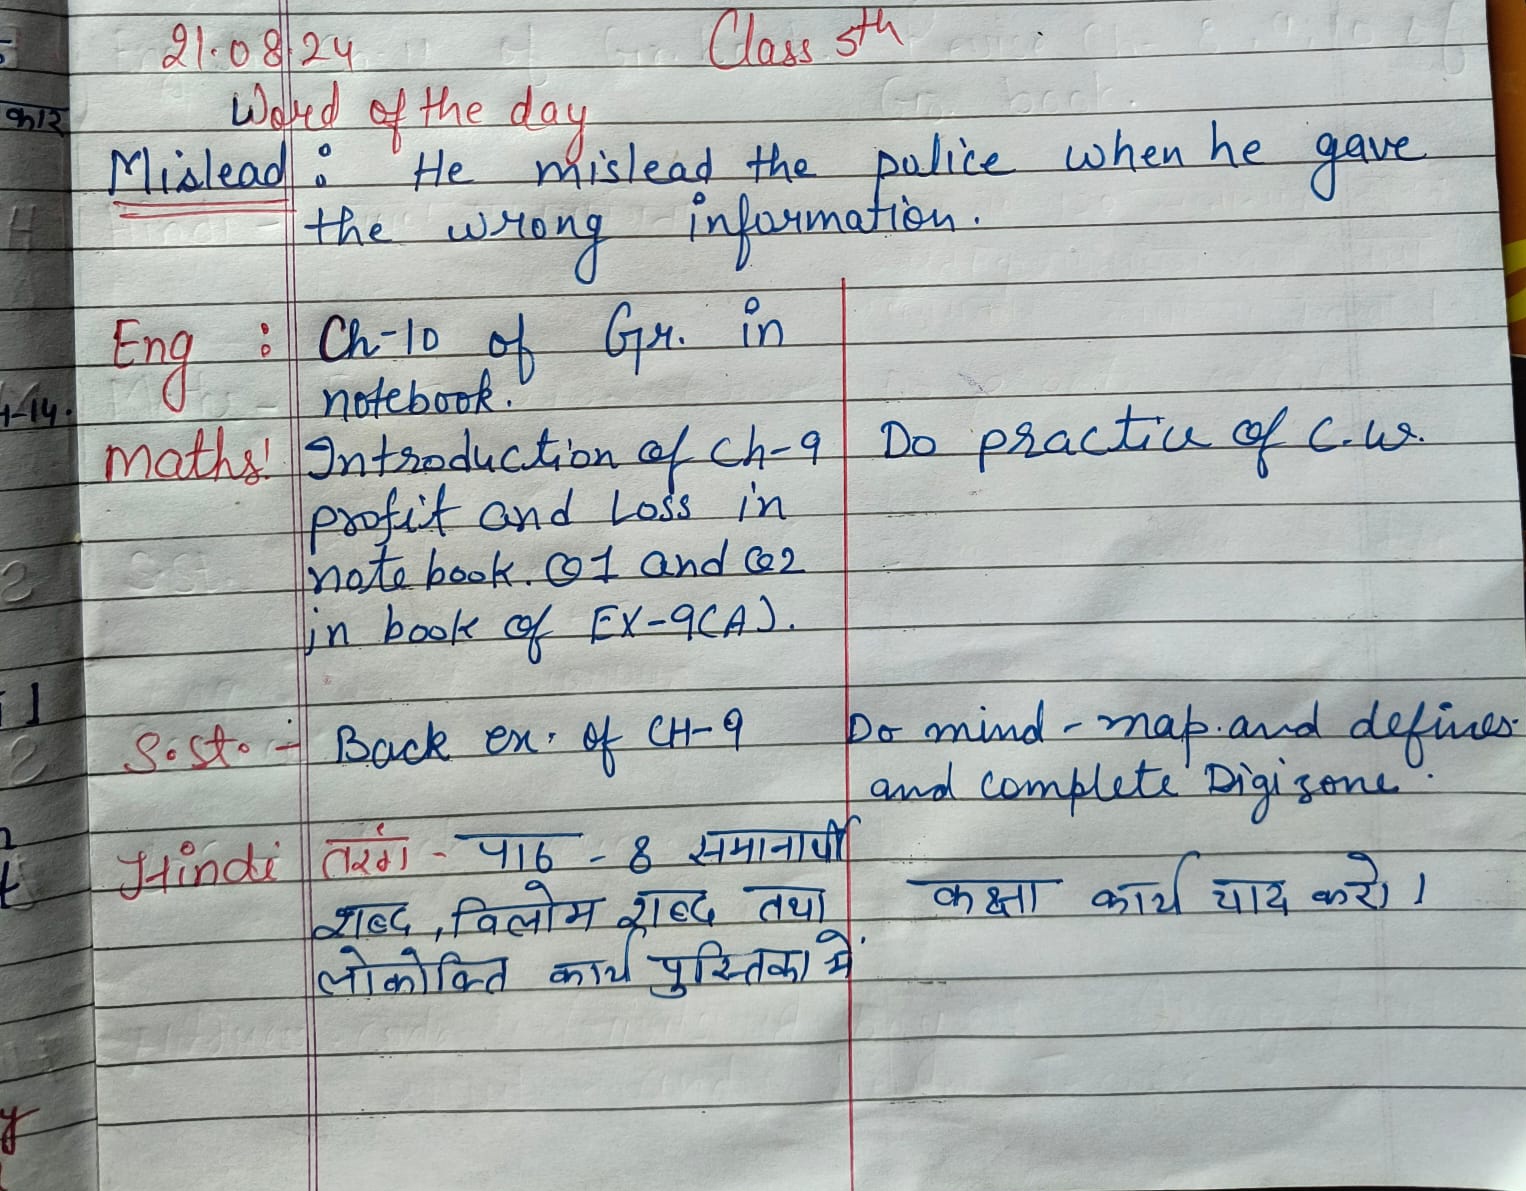 21.08.24 Class 5th
Word of the day
Mislead : He mislead the police when he gave
the wrong information.
Eng : Ch-10 of Gr. in
notebook.
Maths: Introduction of Ch-9 Do practice of C.W.
profit and Loss in
note book. Q1 and Q2
in book of EX-9(A).
S.St. - Back ex. of CH-9 Do mind-map. and defines
and complete Digizone.
Hindi तरंग - पाठ - 8 समानार्थी
शब्द, विलोम शब्द तथा कक्षा कार्य याद करो।
लोकोक्ति कार्य पुस्तिका में